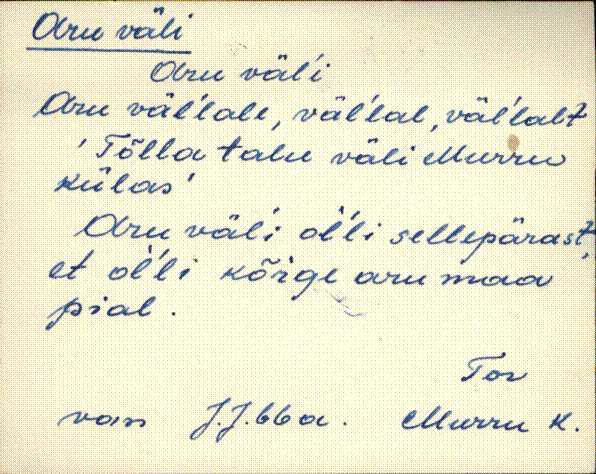 Aru väli
Aru väl'i
Aru väl'lale, väl'lal, väl'lalt
'Tõlla talu väli Murru
külas'
Aru väl'i ol'li sellepärast,
et ol'li kõrge aru maa
pial.
Tor
van J.J. 66a. Murru k.